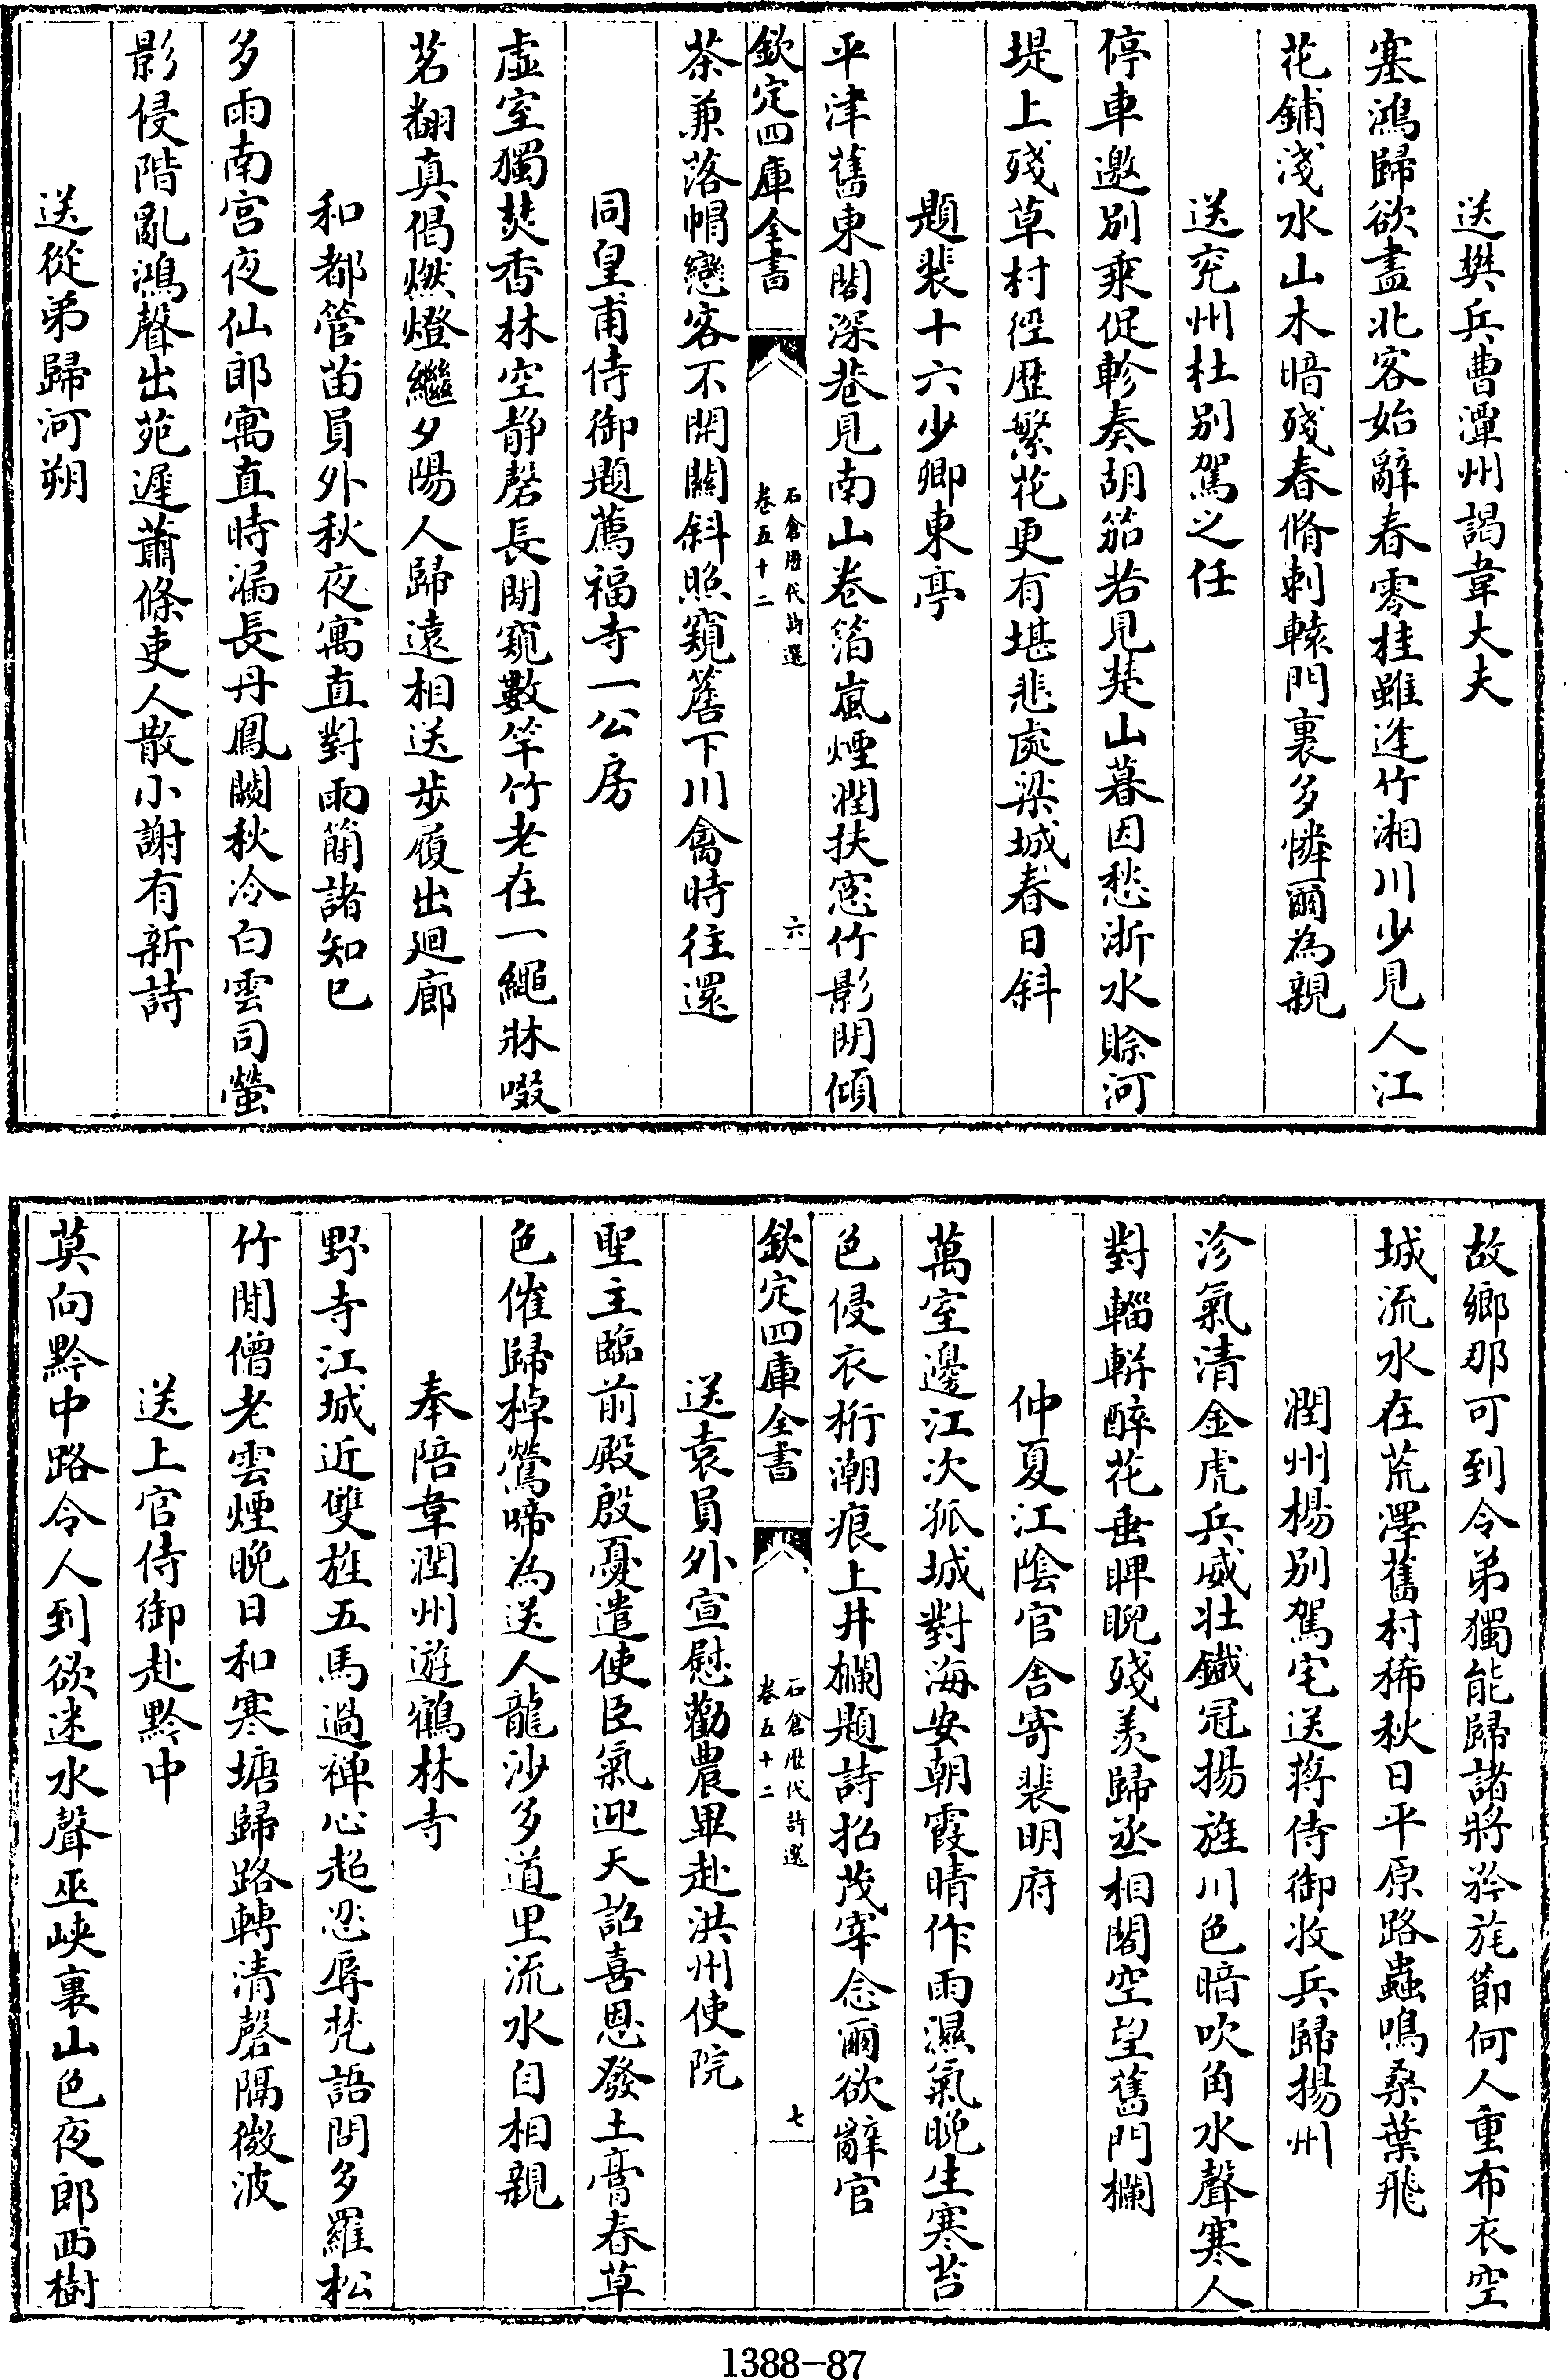 送樊兵曹潭州謁韋大夫
塞鴻歸欲盡北客始辭春零桂雖逢竹湘川少見人江
花鋪淺水山木暗殘春脩刺轅門裏多憐爾為親
送兖州杜别駕之任
停車邀别乘促軫奏胡笳若見楚山暮因愁浙水賒河
堤上殘草村徑歴繁花更有堪悲處梁城春日斜
題裴十六少卿東亭
平津舊東閣深巷見南山卷箔嵐煙潤扶窓竹影閒傾
欽定四庫全書
石倉歴代詩選
卷五十二
六
茶兼落帽戀客不開關斜照窺簷下川禽時往還
同皇甫侍御題薦福寺一公房
虚室獨焚香林空静磬長閒窺數竿竹老在一繩牀啜
茗翻真偈燃燈繼夕陽人歸遠相送步履出廻廊
和都管苗員外秋夜寓直對雨簡諸知已
多雨南宫夜仙郎寓直時漏長丹鳳闕秋冷白雲司螢
影侵階亂鴻聲出苑遲蕭條吏人散小謝有新詩
送從弟歸河朔
故鄉那可到令弟獨能歸諸將矜旄節何人重布衣空
城流水在荒澤舊村稀秋日平原路蟲鳴桑葉飛
潤州楊别駕宅送蔣侍御收兵歸揚州
沴氣清金虎兵威壯鐵冠揚旌川色暗吹角水聲寒人
對輜軿醉花垂睥睨殘羡歸丞相閣空望舊門欄
仲夏江隂官舍寄裴明府
萬室邊江次孤城對海安朝霞晴作雨濕氣晚生寒苔
色侵衣桁潮痕上井欄題詩招茂宰念爾欲辭官
欽定四庫全書
石倉歴代詩選
卷五十二
七
送袁員外宣慰勸農畢赴洪州使院
聖主臨前殿殷憂遣使臣氣迎天詔喜恩發土膏春草
色催歸棹鶯啼為送人龍沙多道里流水自相親
奉陪韋潤州遊鶴林寺
野寺江城近雙旌五馬過禪心超忍辱梵語問多羅松
竹閒僧老雲煙晚日和寒塘歸路轉清磬隔微波
送上官侍御赴黔中
莫向黔中路令人到欲迷水聲巫峽裏山色夜郎西樹
1388-87